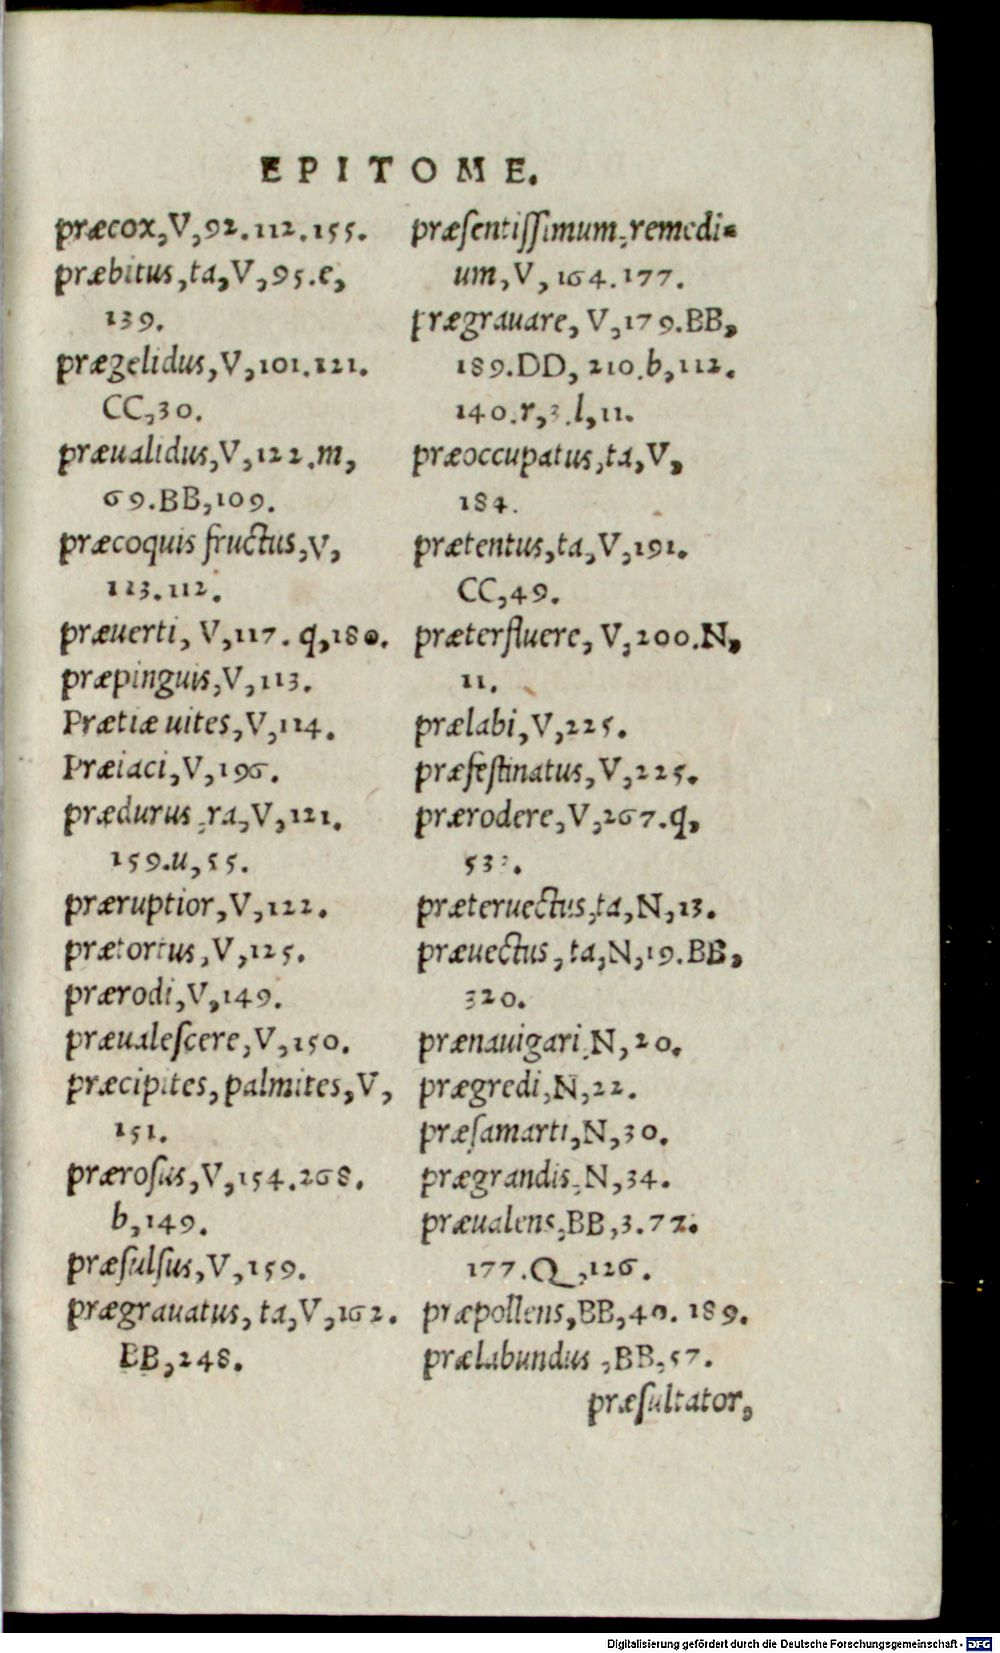 EPITOME.
præcox,V,92.112.155.
præbitus,ta,V,95.e,
139.
prægelidus,V,101.121.
CC,30.
præualidus,V,122.m,
69.BB,109.
præcoquis fructus,V,
113.112.
præuerti, V,117. q,180.
præpinguis,V,113.
Prætiæ uites,V,114.
Præiaci,V,196.
prædurus,ra,V,121.
159.u,55.
præruptior,V,122.
prætortus,V,125.
prærodi,V,149.
præualeſcere,V,150.
præcipites, palmites,V,
151.
præroſus,V,154.268.
b,149.
præſulſus,V,159.
prægrauatus, ta,V,162.
BB,248.
præſentiſſimum,remedi-
um,V,164.177.
prægrauare, V,179.BB,
189.DD, 210.b,112.
140.r,3.l,11.
præoccupatus,ta,V,
184.
prætentus,ta,V,191.
CC,49.
præterfluere, V,200.N,
11.
prælabi,V,225.
præfeſtinatus,V,225.
prærodere,V,267.q,
præteruectus,ta,N,13.
præuectus, ta,N,19.BB,
320.
prænauigari,N,20.
prægredi,N,22.
præſamarti,N,30.
prægrandis,N,34.
præualens,BB,3.72.
177.Q,126.
præpollens,BB,40. 189.
prælabundus ,BB,57.
præſultator,
Digitalisierung gefördert durch die Deutsche Forschungsgemeinschaft - DFG